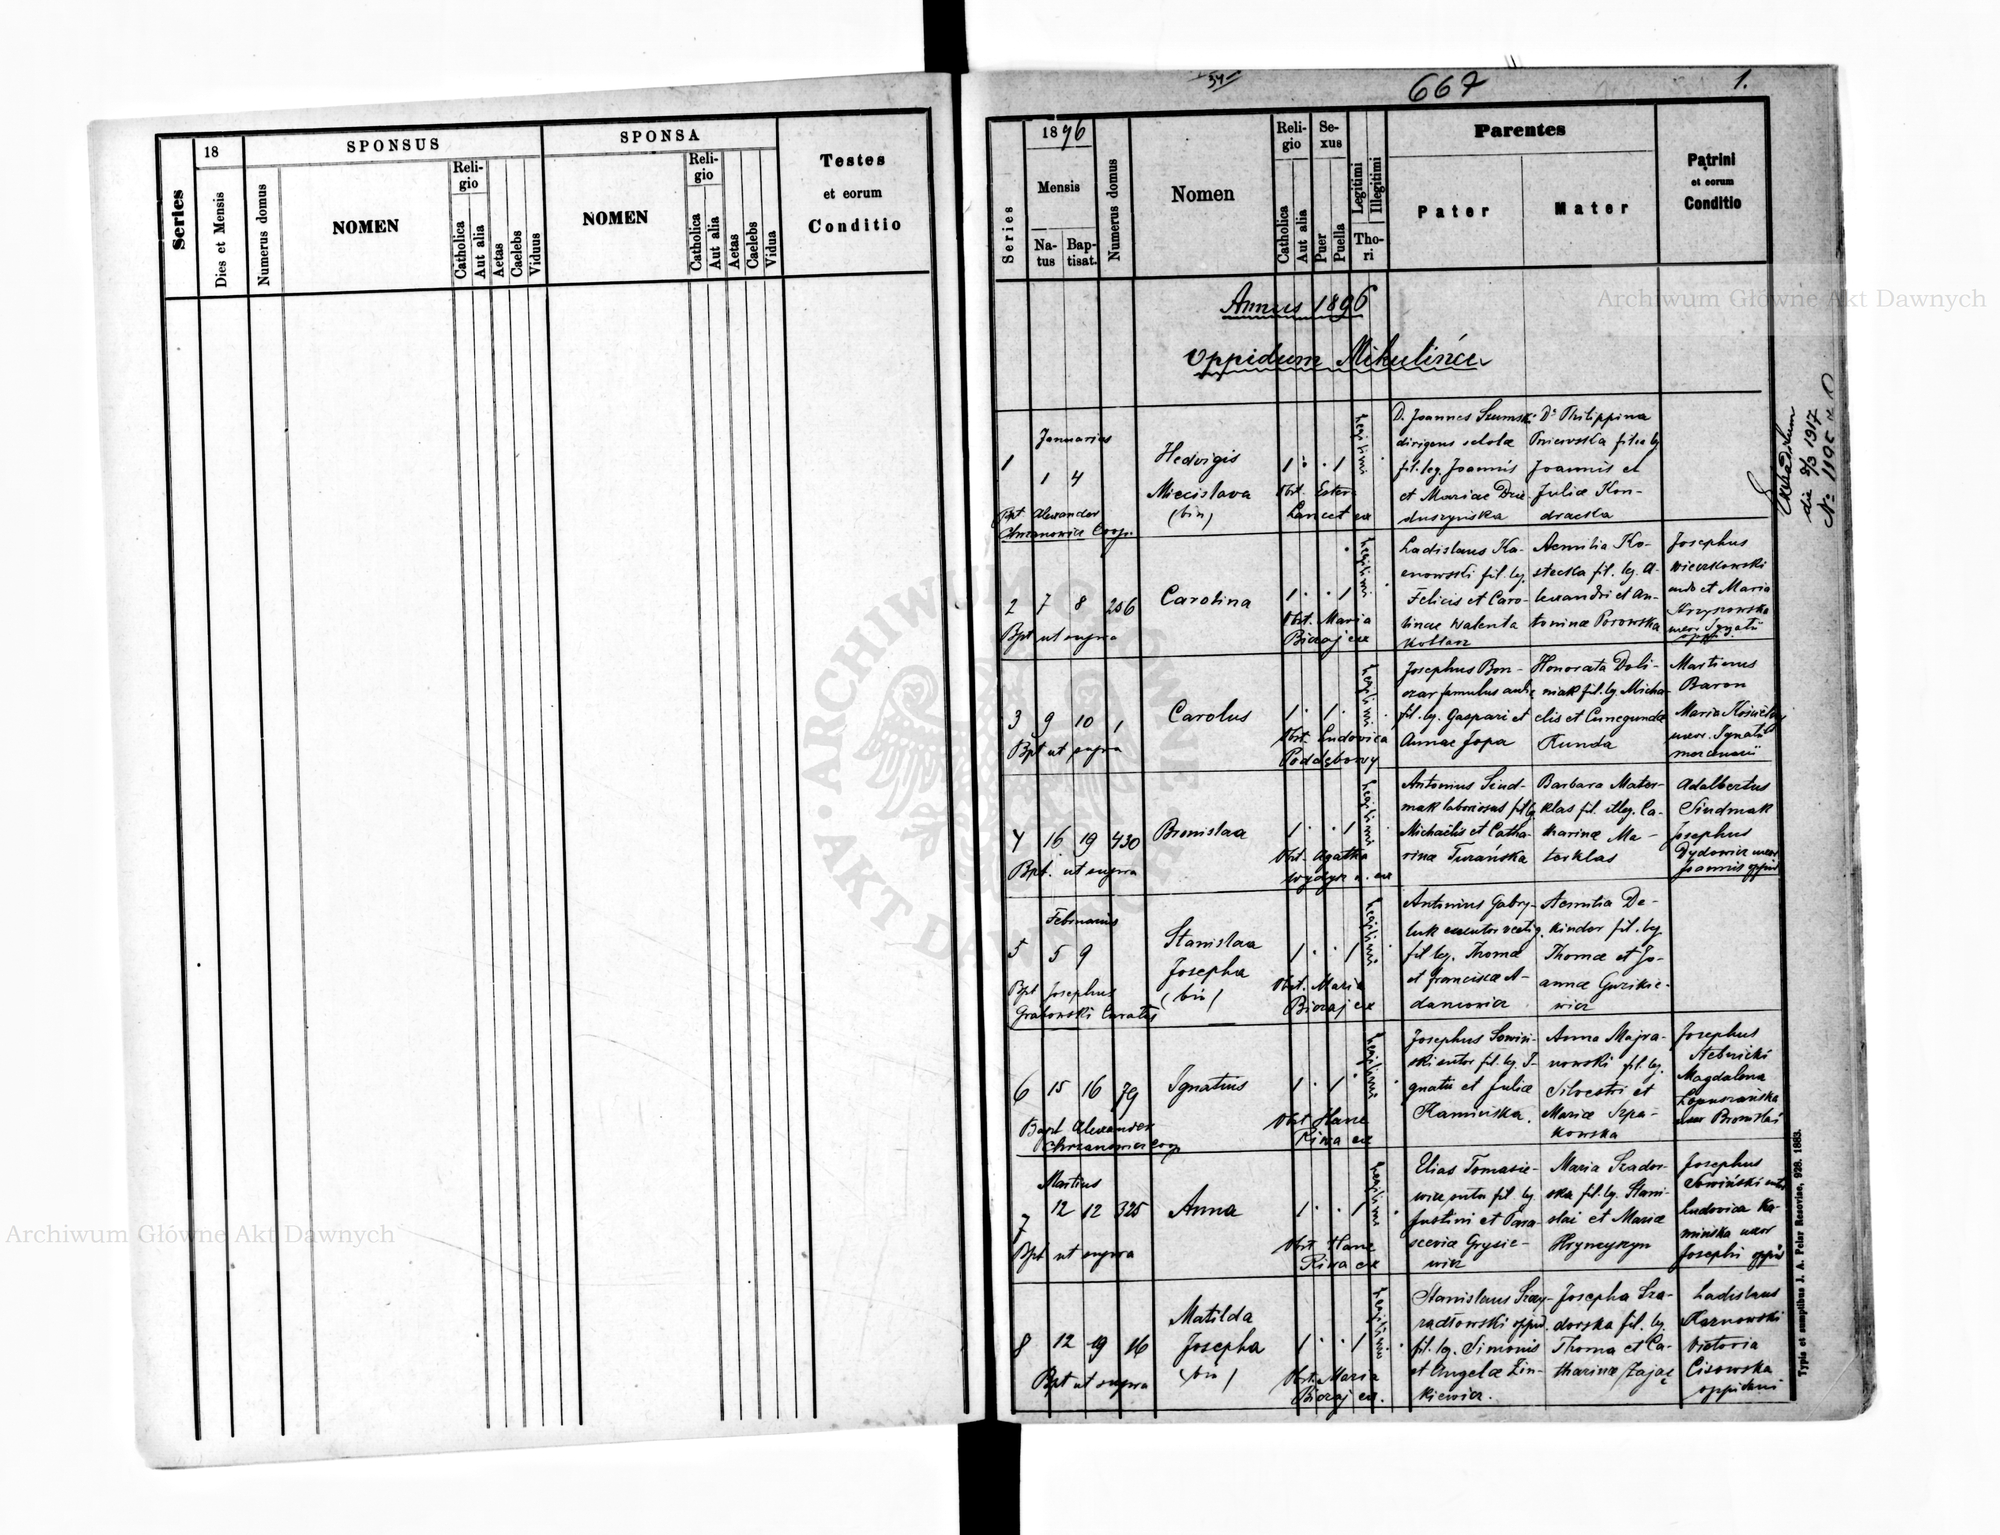 Series
18
Dies et Mensis
Numerus domus
SPONSUS
NOMEN
Reli-
gio
Catholica
Aut alia
Aetas
Caelebs
Viduus
SPONSA
NOMEN
Reli-
gio
Catholica
Aut alia
Aetas
Caelebs
Vidua
Testes
et eorum
Conditio
667
1.
Series
1896
Mensis
Na-
tus
Bap-
tisat.
Numerus domus
Nomen
Reli-
gio
Catholica
Aut alia
Se-
xus
Puer
Puella
Legitimi
Illegitimi
Tho-
ri
Parentes
Pater
Mater
Patrini
et eorum
Conditio
Annus 1896
Oppidum Mikulińce
Januarius
1
1 4
Bpt. Alexander
Chrzanowicz Coop.
Hedvigis
Miecislava
(bin)
1 . . 1
Obst. Estera
Lancet ex
legitimi
D. Joannes Szumski
dirigens scholae
fil. leg. Joannis
et Mariae Dzie-
duszyńska
Dª Philippina
filia leg.
Joannis et
Juliae Kon-
dracka
2 7 8 206
Bpt ut supra
Carolina
1 . . 1
Obst. Maria
ex
legitimi
Ladislaus Ka-
znowski fil. leg.
Felicis et Caro-
linae Walenta
Aemilia Ko-
stecka fil. leg. A-
lexandri et An-
toninae Porowska
Josephus
et Maria
Krzyszowska
uxor Ignatii
3 9 10 1
Bpt ut supra
Carolus
1 . 1 .
Obst. Ludovica
Poddębowy
legitimi
Josephus Bon-
czar famulus
fil. leg. Gaspari et
Annae Jopa
Honorata Doli-
niak fil. leg. Micha-
elis et Cunegundae
Kunda
Martinus
Baron
Maria
uxor. Ignatii
mercenarii
4 16 19 430
Bpt. ut supra
Bronislaa
1 . . 1
Obst. Agatha
ex
legitimi
Antonius Sind-
mak laboriosus fil. leg.
Michaëlis et Catha-
rinae Turańska
Barbara Mater-
klas fil. illeg. Ca-
tharinae Ma-
terklas
Adalbertus
Sindmak
Josephus
Dydowicz uxor
Joannis oppid.
Februarius
5 5 9
Bpt Josephus
Grabowski Curatus
Stanislaa
Josepha
(bin)
1 . . 1
Obst. Maria
ex
legitimi
Antonius Gabry-
luk
fil. leg. Thomae
et Franciscae A-
damowicz
Aemilia De-
kinder fil. leg.
Thomae et Jo-
annae Guzikie-
wicz
6 15 16 79
Bapt Alexander
Chrzanowicz Coop
Ignatius
1 . 1 .
Obst Hane
Riwa ex
legitimi
Josephus Sowiń-
ski sutor fil. leg. I-
gnatii et Juliae
Kamińska.
Anna Majra-
nowski fil. leg.
Silvestri et
Mariae Szpa-
kowska
Josephus
Stebnicki
Magdalena
Łopuszańska
uxor Bronislai
Martius
7
12 12 325
Bpt ut supra
Anna
1 . . 1
Obst Hane
Riwa ex
legitimi
Elias Tomasie-
wicz sutor fil. leg.
Justini et Para-
sceviae Grysie-
wicz
Maria Szador-
ska fil. leg. Stani-
slai et Mariae
Hrynczyszyn
Josephus
Sowiński sutor
Ludovica Ka-
mińska uxor
Josephi oppid
8 12 19 16
Bpt ut supra
Matilda
Josepha
(bin)
1 . . 1
Obst. Maria
ex.
legitimi
Stanislaus Szay-
radłowski oppid.
fil. leg. Simonis
et Angelae Zin-
kiewicz.
Josepha Sza-
dorska fil. leg.
Thoma et Ca-
tharinae Zając
Ladislaus
Kaznowski
Victoria
Cisowska
oppidani
die 8/3 1917
Typis et sumptibus J. A. Pelar Resoviae, 928. 1883.
Archiwum Główne Akt Dawnych
Archiwum Główne Akt Dawnych
ARCHIWUM GŁÓWNE
AKT DAWNYCH